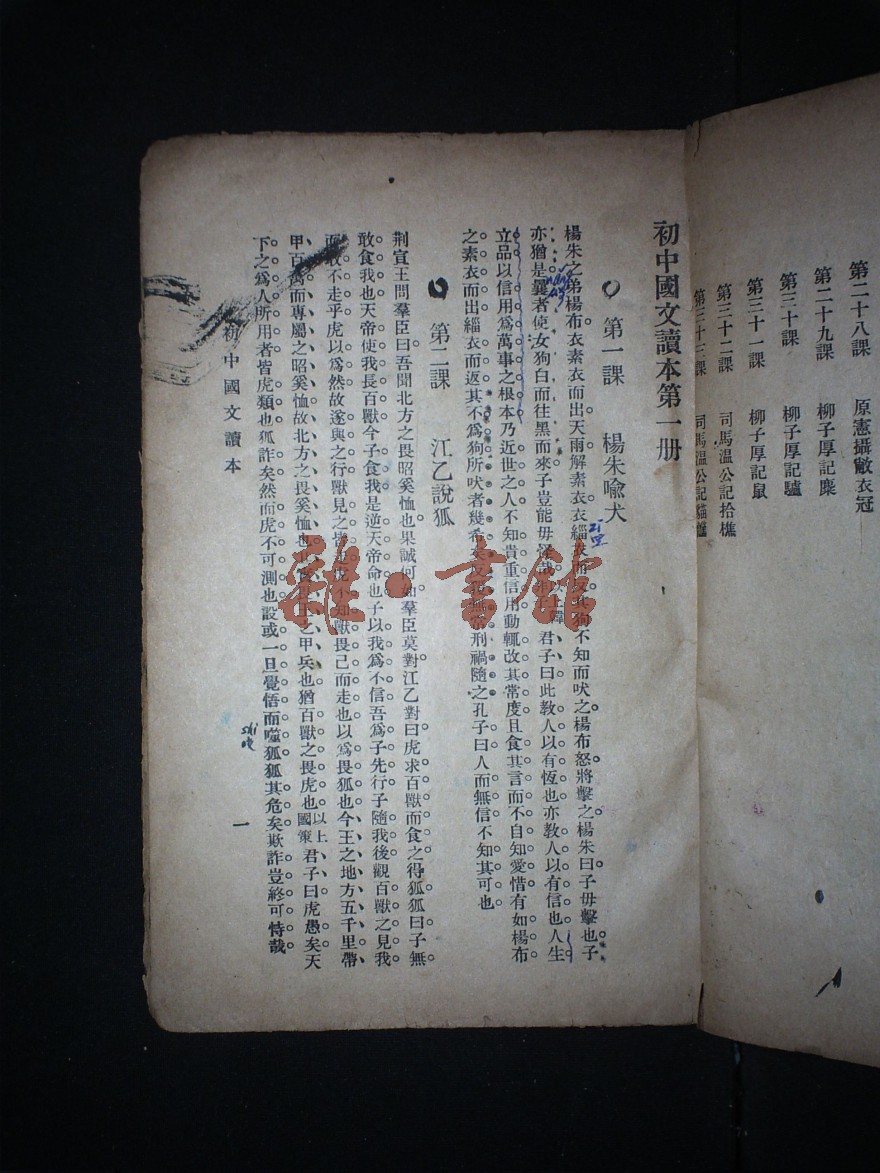 第二十八課　原憲攝敝衣冠
第二十九課　柳子厚記麋
第三十課　柳子厚記驢
第三十一課　柳子厚記鼠
第三十二課　司馬溫公記拾樵
第三十三課　司馬溫公記貓
初中國文讀本第一册
第一課　楊朱喩犬
楊朱之弟楊布衣素衣而出。天雨。解素衣。衣緇衣而反。其狗不知而吠之。楊布怒。將擊之。楊朱曰。子毋擊也。子
亦猶是。曩者使女狗白而往。黑而來。子豈能毋怪哉。君子曰。此敎人以有恆也。亦敎人以有信也。人生
立品以信用爲萬事之根本。乃近世之人不知貴重信用。動輒改其常度。且食其言而不自知愛惜。有如楊布
之素衣而出。緇衣而返。其不爲狗所吠者幾希矣。反無常。刑禍隨之。孔子曰。人而無信。不知其可也
第二課　江乙說狐
荆宣王問羣臣曰。吾聞北方之畏昭奚恤也。果誠何如。羣臣莫對。江乙對曰。虎求百獸而食之。得狐。狐曰。子無
敢食我也。天帝使我長百獸。今子食我。是逆天帝命也。子以我爲不信。吾爲子先行。子隨我後。觀百獸之見我
而敢不走乎。虎以爲然。故遂與之行。獸見之皆走。虎不知獸畏己而走也。以爲畏狐也。今王之地方五千里、帶
甲百萬而專屬之昭奚恤。故北方之畏奚恤也。其實畏王之甲兵也。猶百獸之畏虎也。以上國策　君子曰。虎愚矣。天
下之爲人所用者皆虎類也。狐詐矣。然而虎不可測也。設或一旦覺悟而噬狐。狐其危矣。欺詐豈終可恃哉
初中國文讀本
一
雜·書館